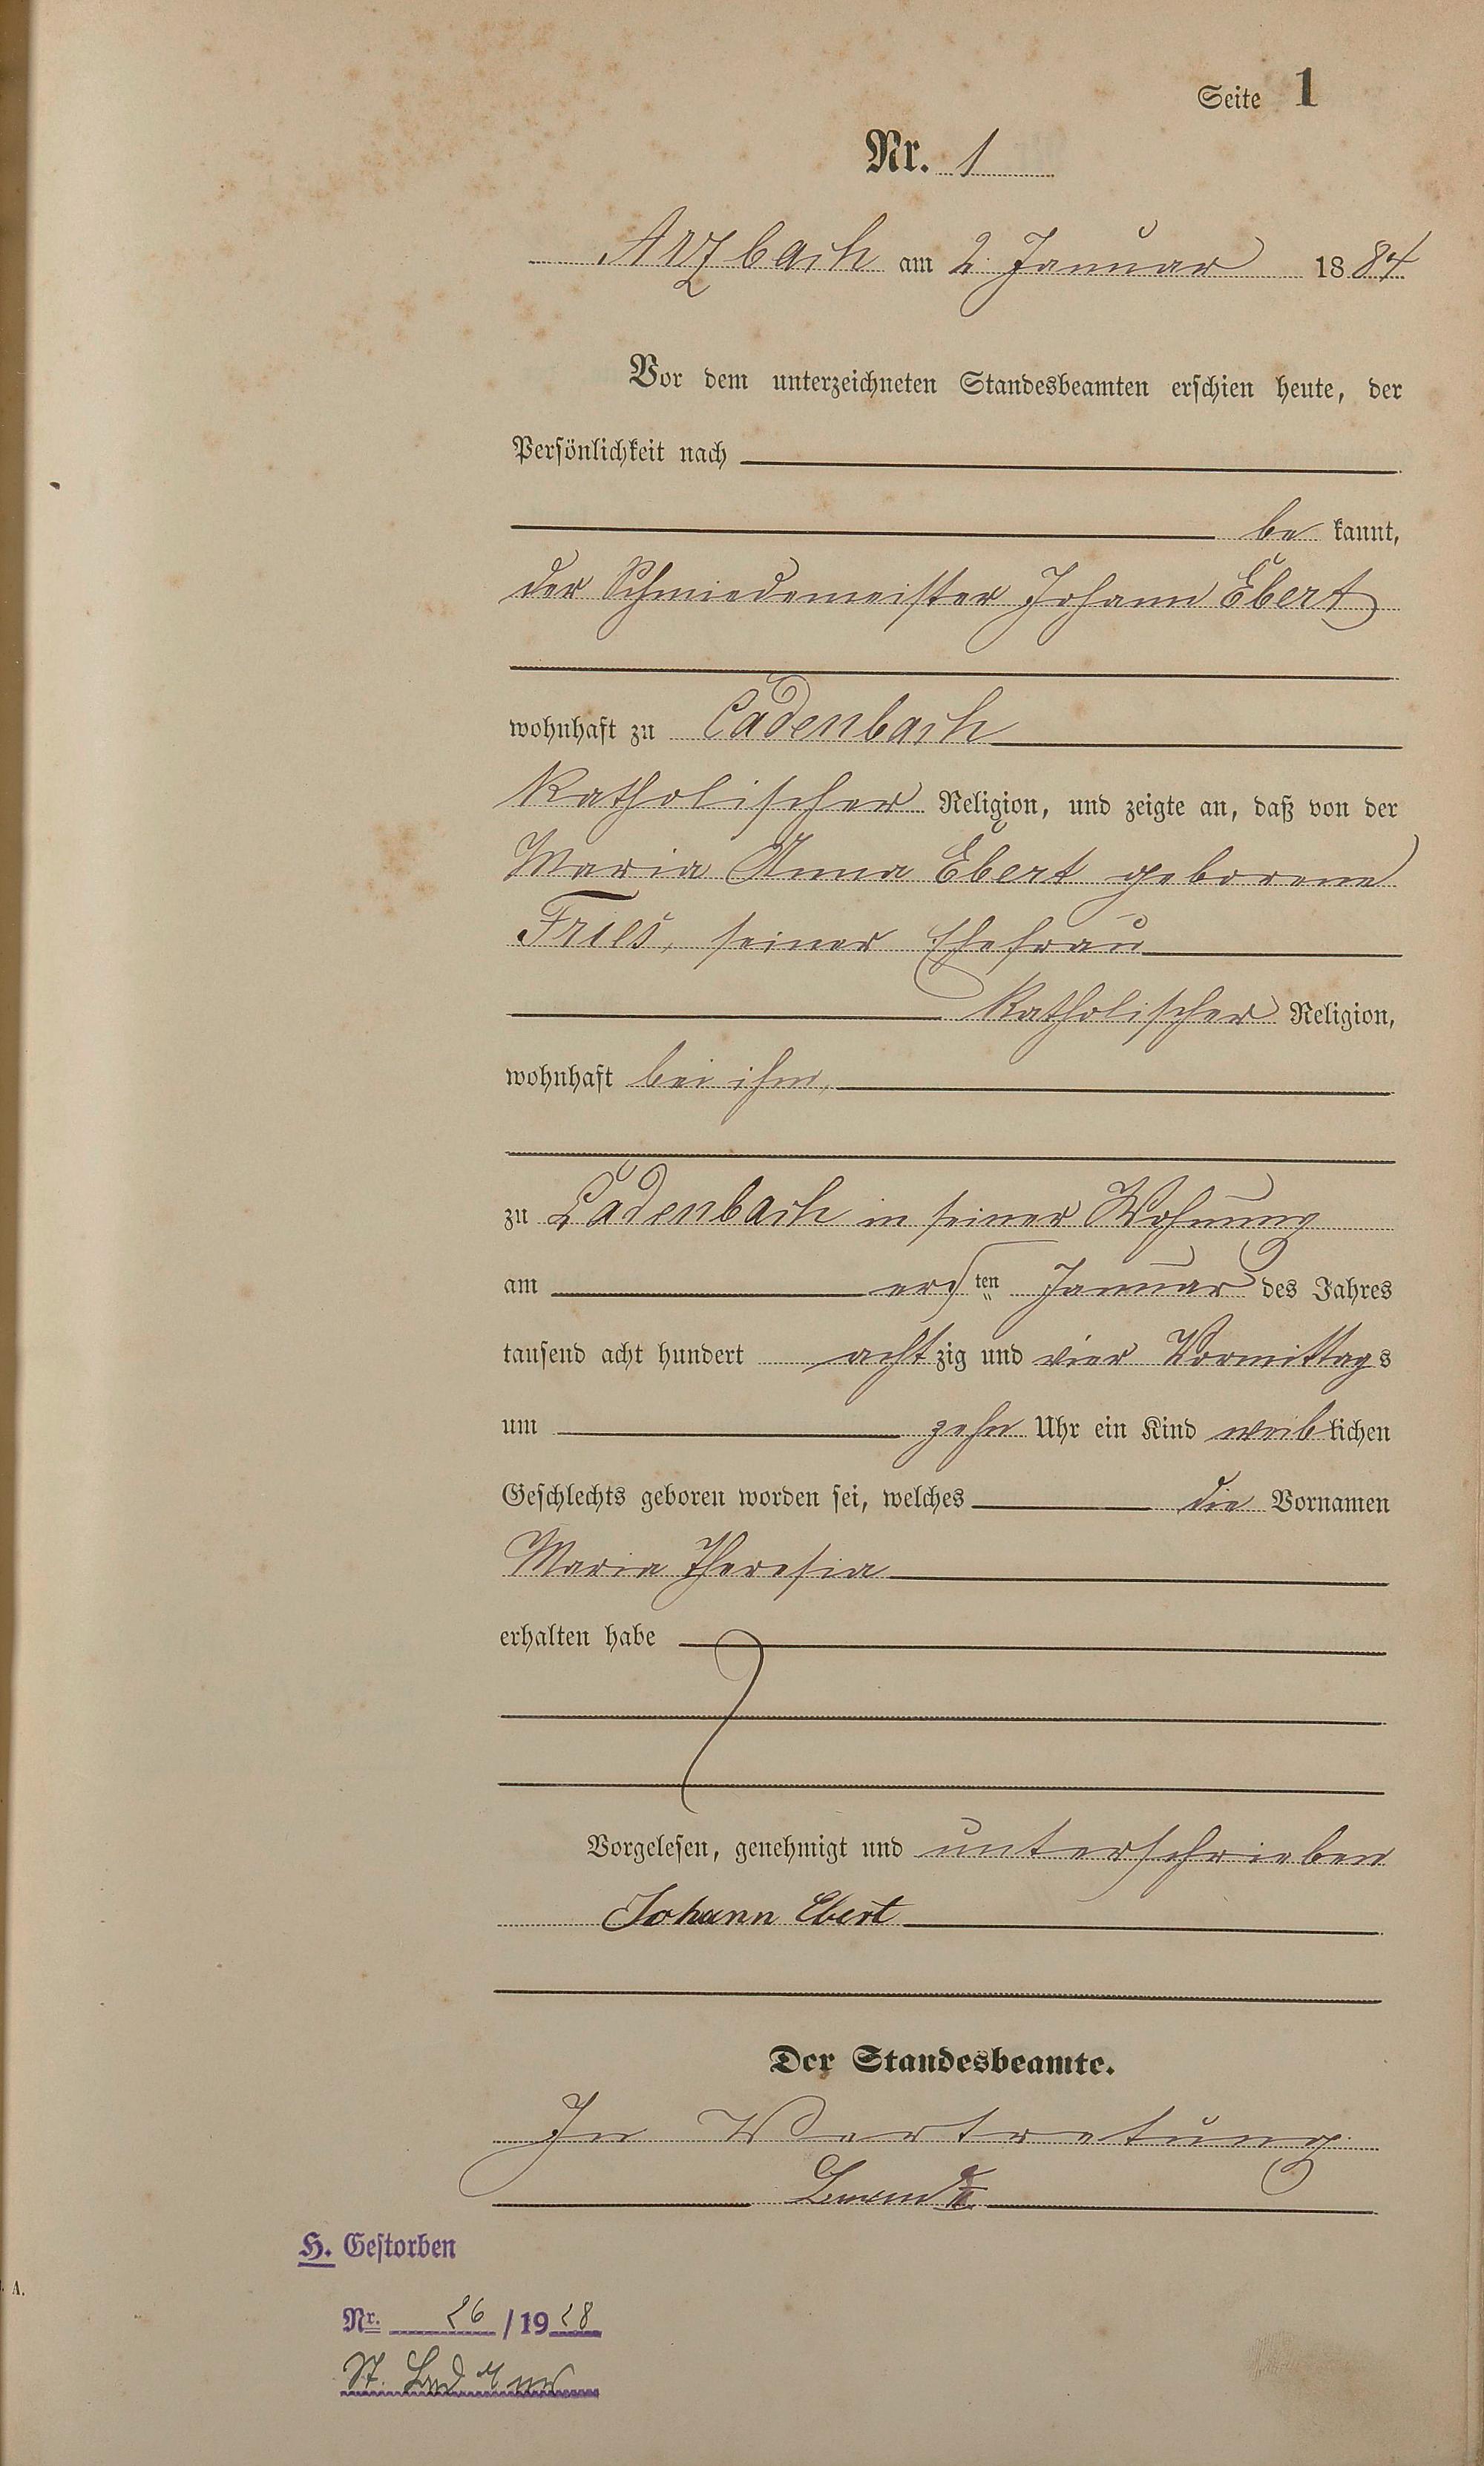 Seite 1
Nr. 1
Arzbach am 2. Januar 1884
Vor dem unterzeichneten Standesbeamten erschien heute, der
Persönlichkeit nach
be kannt,
der Schmiedemeister Johann Ebert
wohnhaft zu Cadenbach
katholischer Religion, und zeigte an, daß von der
Maria Anna Ebert geborene
Fries, seiner Ehefrau
katholischer Religion,
wohnhaft bei ihm,
zu Cadenbach in seiner Wohnung
am ersten Januar des Jahres
tausend acht hundert achtzig und vier Vormittags
um zehn Uhr ein Kind weiblichen
Geschlechts geboren worden sei, welches die Vornamen
Maria Theresia
erhalten habe
Vorgelesen, genehmigt und unterschrieben
Johann Ebert
Der Standesbeamte.
In Vertretung
H. Gestorben
Nr. 26/1928
St.
A.